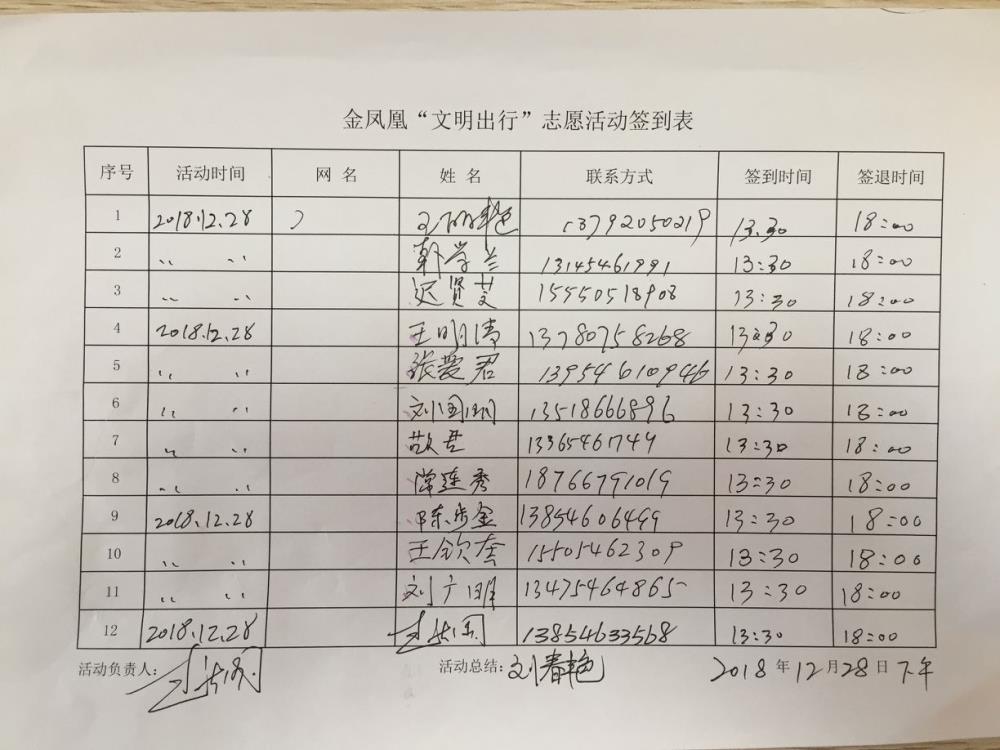 金凤凰“文明出行”志愿活动签到表
序号 活动时间 网 名 姓 名 联系方式 签到时间 签退时间
1 2018.12.28 13792050219 13.30 18:00
2 〃 〃 韩学兰 13145461991 13:30 18:00
3 〃 〃 迟贤芝 15550518908 13:30 18:00
4 2018.12.28 王明清 13780758268 13:30 18:00
5 〃 〃 张爱君 13954610946 13:30 18:00
6 〃 〃 刘国明 13518666896 13:30 18:00
7 〃 〃 1336546749 13:30 18:00
8 〃 〃 常连秀 18766791019 13:30 18:00
9 2018.12.28 陈步金 13854606499 13:30 18:00
10 〃 〃 王钦奎 15505462309 13:30 18:00
11 〃 〃 刘广明 13475464865 13:30 18:00
12 2018.12.28 13854633568 13:30 18:00
活动负责人: 活动总结: 刘春艳 2018 年 12 月 28 日 下午